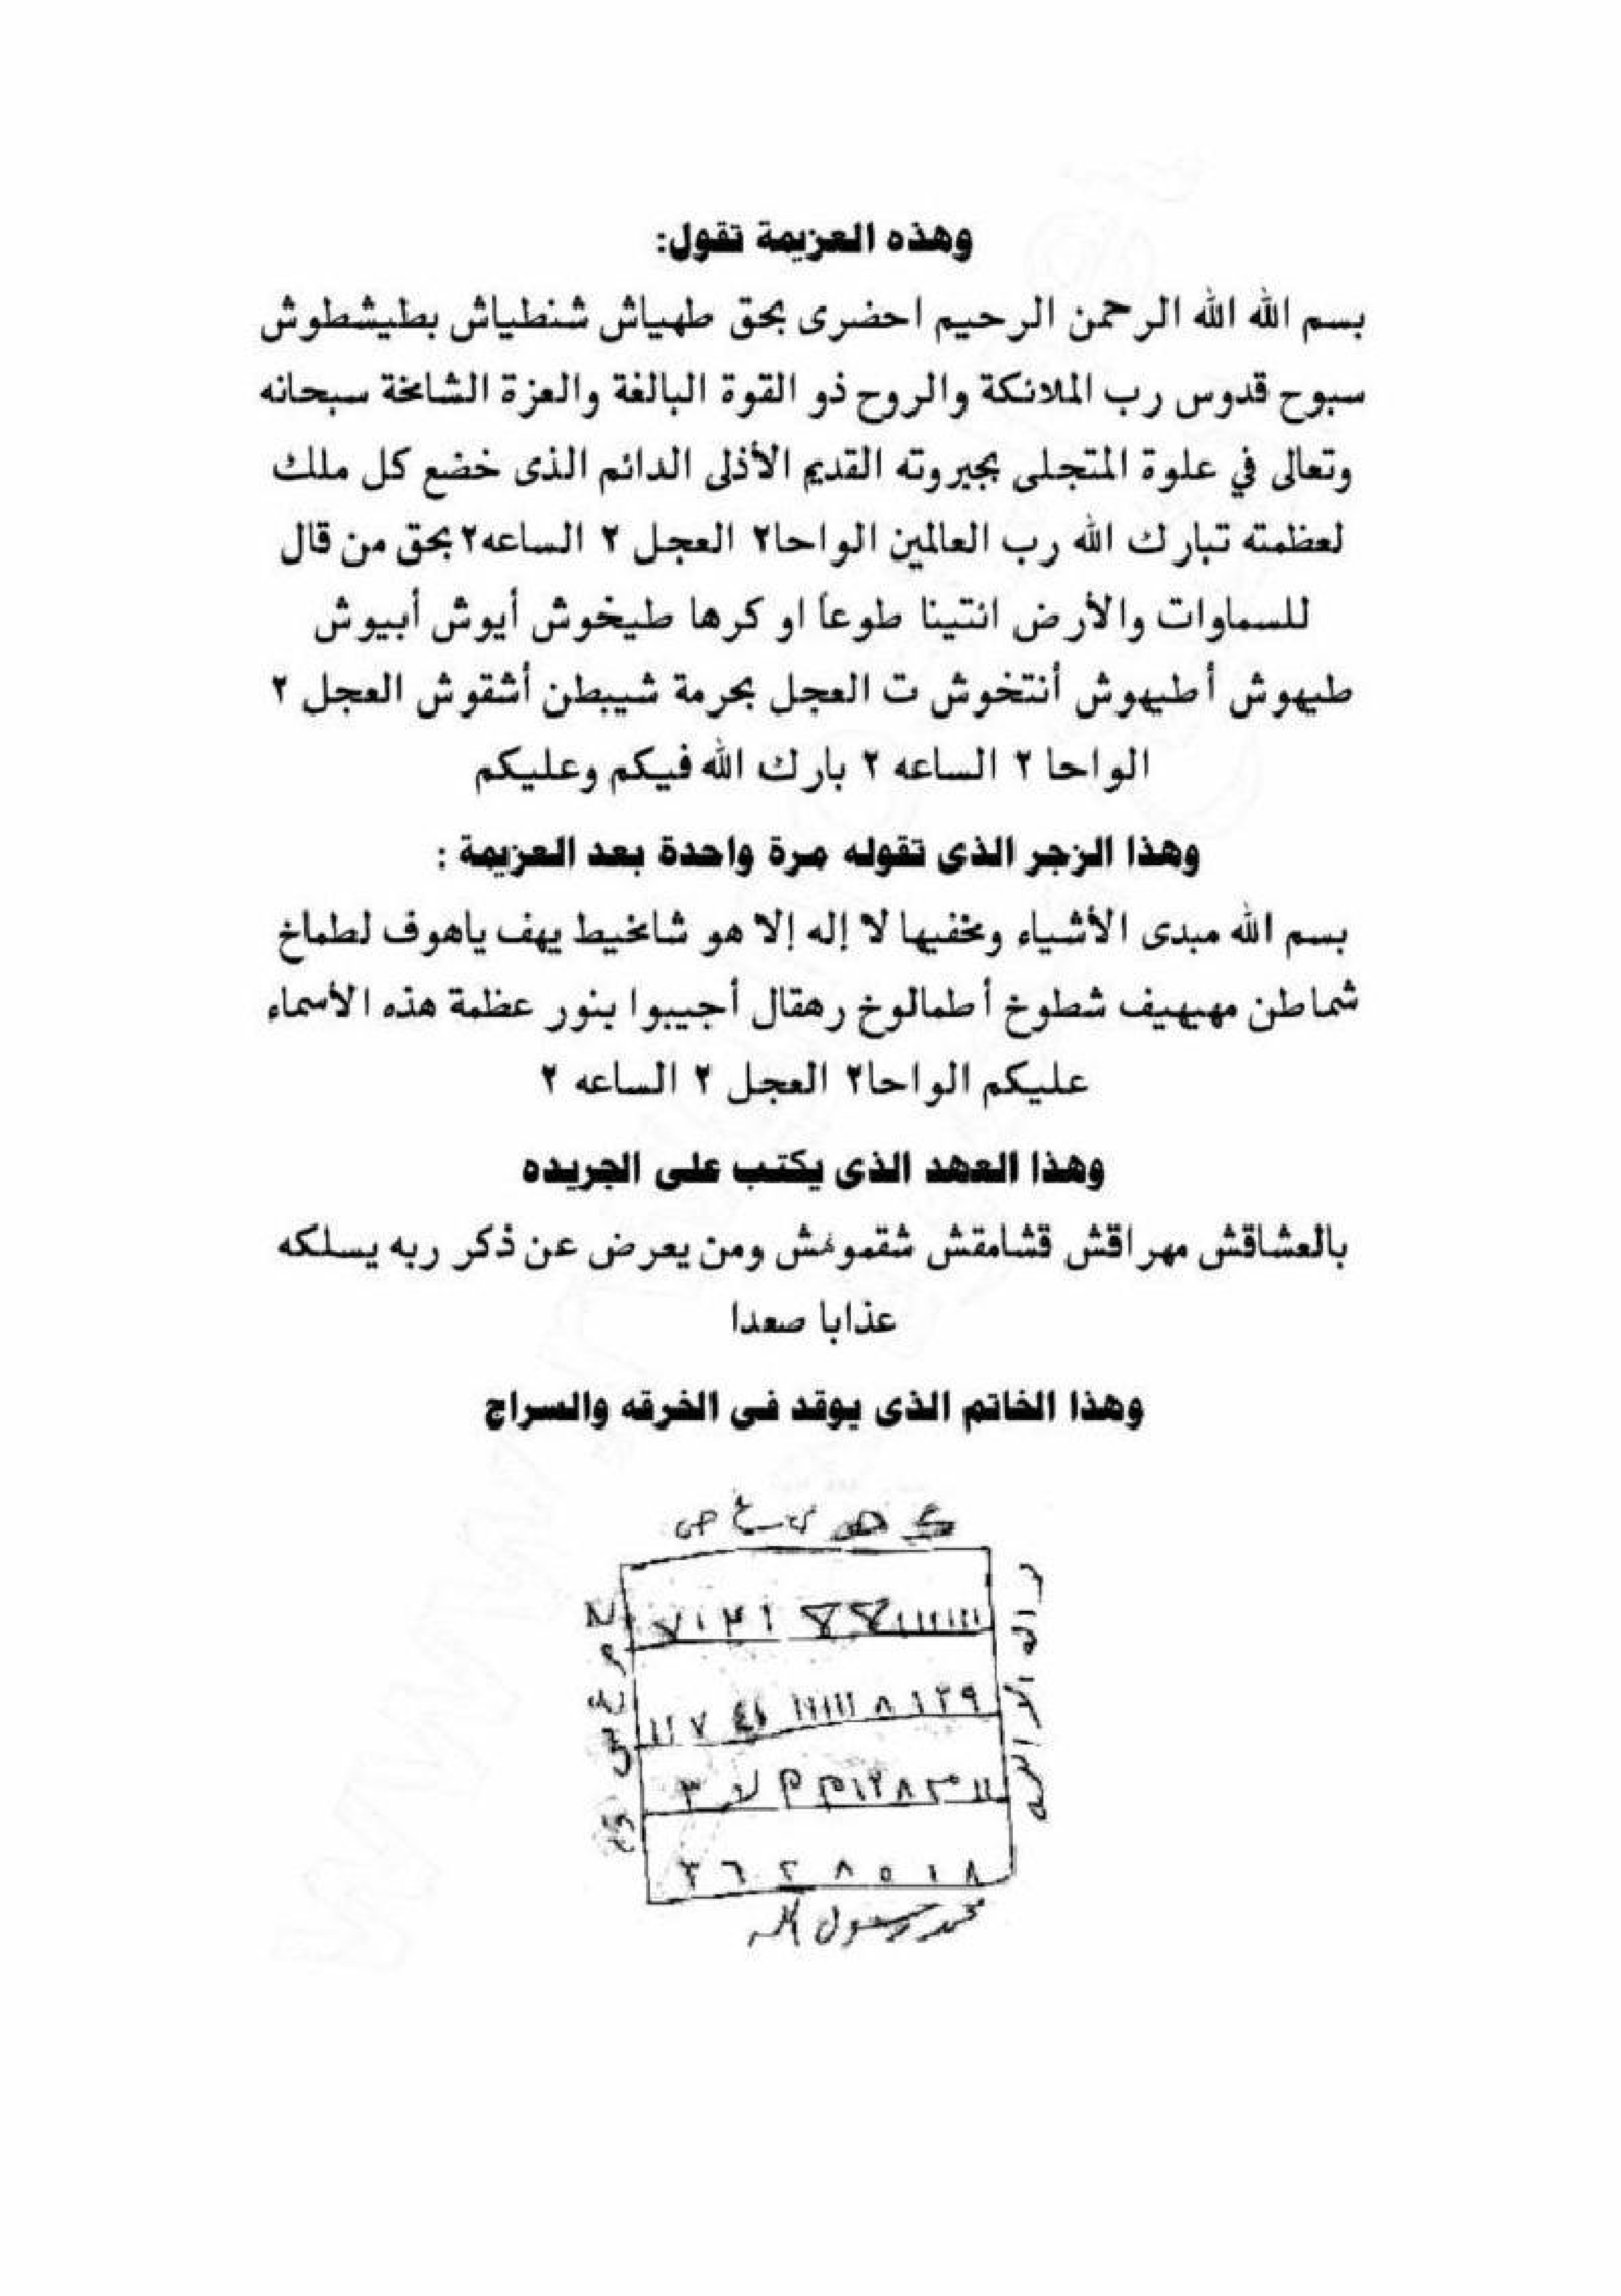 وهذه العزيمة تقول:
بسم الله الله الرحمن الرحيم احضرى بحق طهياش شنطياش بطيشطوش
سبوح قدوس رب الملائكة والروح ذو القوة البالغة والعزة الشامخة سبحانه
وتعالى في علوة المتجلى بجبروته القديم الأذلى الدائم الذى خضع كل ملك
لعظمته تبارك الله رب العالمين الواحا٢ العجل ٢ الساعه٢ بحق من قال
للسماوات والأرض ائتينا طوعاً او كرها طيخوش أيوش أبيوش
طيهوش أطيهوش أنتخوش ت العجل بحرمة شيبطن أشقوش العجل ٢
الواحا ٢ الساعه ٢ بارك الله فيكم وعليكم
وهذا الزجر الذى تقوله مرة واحدة بعد العزيمة :
بسم الله مبدى الأشياء ومخفيها لا إله إلا هو شامخيط يهف ياهوف لطماخ
شماطن مهيهيف شطوخ أطمالوخ رهقال أجيبوا بنور عظمة هذه الأسماء
عليكم الواحا٢ العجل ٢ الساعه ٢
وهذا العهد الذى يكتب على الجريده
بالعشاقش مهراقش قشامقش ومن يعرض عن ذكر ربه يسلكه
عذابا صعدا
وهذا الخاتم الذى يوقد فى الخرقه والسراج
لا اله الا الله
٩ ٢ ١ ٨ ١١١١١١
٨ ١ ٥ ٨ ٢ ٦ ٣
محمد رسول الله